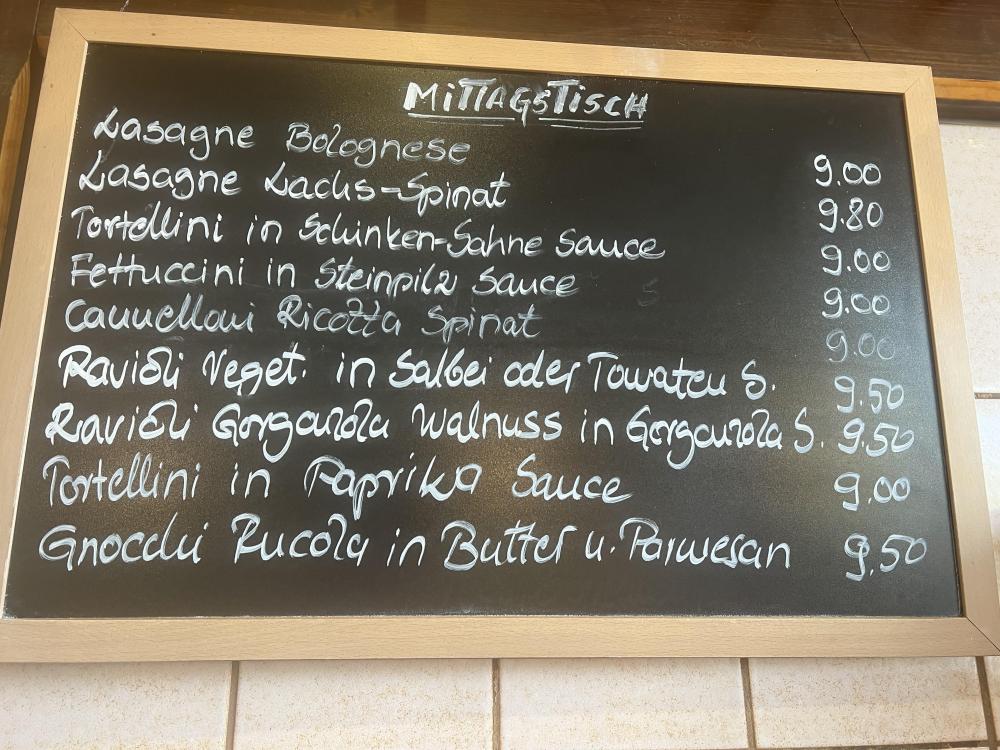 MITTAGSTISCH
Lasagne Bolognese 9.00
Lasagne Lachs-Spinat 9.80
Tortellini in Schinken-Sahne Sauce 9.00
Fettuccini in Steinpilz Sauce 9.00
Cannelloni Ricotta Spinat 9.00
Ravioli Veget. in Salbei oder Tomaten S. 9.50
Ravioli Gorgonzola Walnuss in Gorgonzola S. 9.50
Tortellini in Paprika Sauce 9.00
Gnocchi Rucola in Butter u. Parmesan 9.50